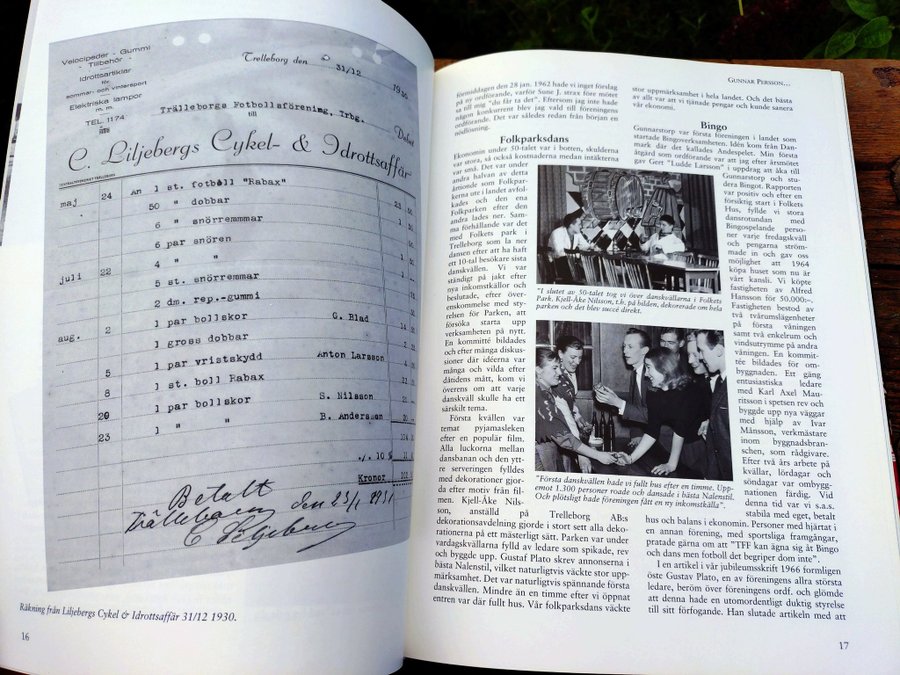 Velocipeder - Gummi
- Tillbehör -
Idrottsartiklar
för
sommar- och vintersport
Elektriska lampor
m. m.
TEL. 1174
Trelleborg den 31/12 1930
Trälleborgs Fotbollsförening, Trbg.
till
Debet
C. Liljebergs Cykel- & Idrottsaffär
maj 24 An 1 st. fotboll "Rabax"
50 " dobbar
6 " snörremmar
6 par snören
4 " "
juli 22 5 st. snörremmar
2 dm. rep.-gummi
aug. 2 1 par bollskor G. Blad
1 gross dobbar
5 1 par vristskydd Anton Larsson
8 1 st. boll Rabax
20 1 par bollskor S. Nilsson
23 1 " " B. Andersson
./. 10 %
Kronor
Betalt
Trälleborg den 23/1 1931
C Liljeberg
Räkning från Liljebergs Cykel & Idrottsaffär 31/12 1930.
16
GUNNAR PERSSON...
förmiddagen den 28 jan. 1962 hade vi inget förslag
på ny ordförande, varför Sune J. strax före mötet
sa till mig "du får ta der". Eftersom jag inte hade
någon konkurrent blev jag vald till föreningens
ordförande. Det var således redan från början en
nödlösning.
Folkparksdans
Ekonomin under 50-talet var i botten, skulderna
var stora, så också kostnaderna medan intäkterna
var små. Det var under
andra halvan av detta
årtionde som Folkpar-
kerna ute i landet avfol-
kades och den ena
Folkparken efter den
andra lades ner. Sam-
ma förhållande var det
med Folkets park i
Trelleborg som la ner
dansen efter att ha haft
ett 10-tal besökare sista
danskvällen. Vi var
ständigt på jakt efter
nya inkomstkällor och
beslutade, efter över-
enskommelse med sty-
relsen för Parken, att
försöka starta upp
verksamheten på nytt.
En kommitté bildades
och efter många diskus-
sioner där idéerna var
många och vilda efter
dåtidens mått, kom vi
överens om att varje
danskväll skulle ha ett
särskilt tema.
Första kvällen var
temat pyjamasleken
efter en populär film.
Alla luckorna mellan
dansbanan och den ytt-
re serveringen fylldes
med dekorationer gjor-
da efter motiv från fil-
men. Kjell-Åke Nils-
son, anställd på Trelleborg AB:s
dekorationsavdelning gjorde i stort sett alla deko-
rationerna på ett mästerligt sätt. Parken var under
vardagskvällarna fylld av ledare som spikade, rev
och byggde upp. Gustaf Plato skrev annonserna i
bästa Nalenstil, vilket naturligtvis väckte stor upp-
märksamhet. Det var naturligtvis spännande första
danskvällen. Mindre än en timme efter vi öppnat
entren var där fullt hus. Vår folkparksdans väckte
"I slutet av 50-talet tog vi över danskvällarna i Folkets
Park. Kjell-Åke Nilsson, t.h. på bilden, dekorerade om hela
parken och det blev succé direkt.
"Första danskvällen hade vi fullt hus efter en timme. Upp-
emot 1.300 personer roade och dansade i bästa Nalenstil.
Och plötsligt hade föreningen fått en ny inkomstkälla".
stor uppmärksamhet i hela landet. Och det bästa
av allt var att vi tjänade pengar och kunde sanera
vår ekonomi.
Bingo
Gunnarstorp var första föreningen i landet som
startade Bingoverksamheten. Idén kom från Dan-
mark där det kallades Andespelet. Min första
åtgärd som ordförande var att jag efter årsmötet
gav Gert "Ludde Larsson" i uppdrag att åka till
Gunnarstorp och stu-
dera Bingot. Rapporten
var positiv och efter en
försiktig start i Folkets
Hus, fyllde vi stora
dansrotundan med
Bingospelande perso-
ner varje fredagskväll
och pengarna strömm-
ade in och gav oss
möjlighet att 1964
köpa huset som nu är
vårt kansli. Vi köpte
fastigheten av Alfred
Hansson för 50.000:-.
Fastigheten bestod av
två tvårumslägenheter
på första våningen
samt två enkelrum och
vindsutrymme på andra
våningen. En kommit-
tée bildades för om-
byggnaden. Ett gäng
entusiastiska ledare
med Karl Axel Mau-
ritsson i spetsen rev och
byggde upp nya väggar
med hjälp av Ivar
Månsson, verkmästare
inom byggnadsbran-
schen, som rådgivare.
Efter två års arbete på
kvällar, lördagar och
söndagar var ombygg-
nationen färdig. Vid
denna tid var vi s.a.s.
stabila med eget, betalt
hus och balans i ekonomin. Personer med hjärtat i
en annan förening, med sportsliga framgångar,
pratade gärna om att "TFF kan ägna sig åt Bingo
och dans men fotboll det begriper dom inte".
I en artikel i vår jubileumsskrift 1966 formligen
öste Gustav Plato, en av föreningens allra största
ledare, beröm över föreningens ordf. och glömde
att denna hade en utomordentligt duktig styrelse
till sitt förfogande. Han slutade artikeln med att
17